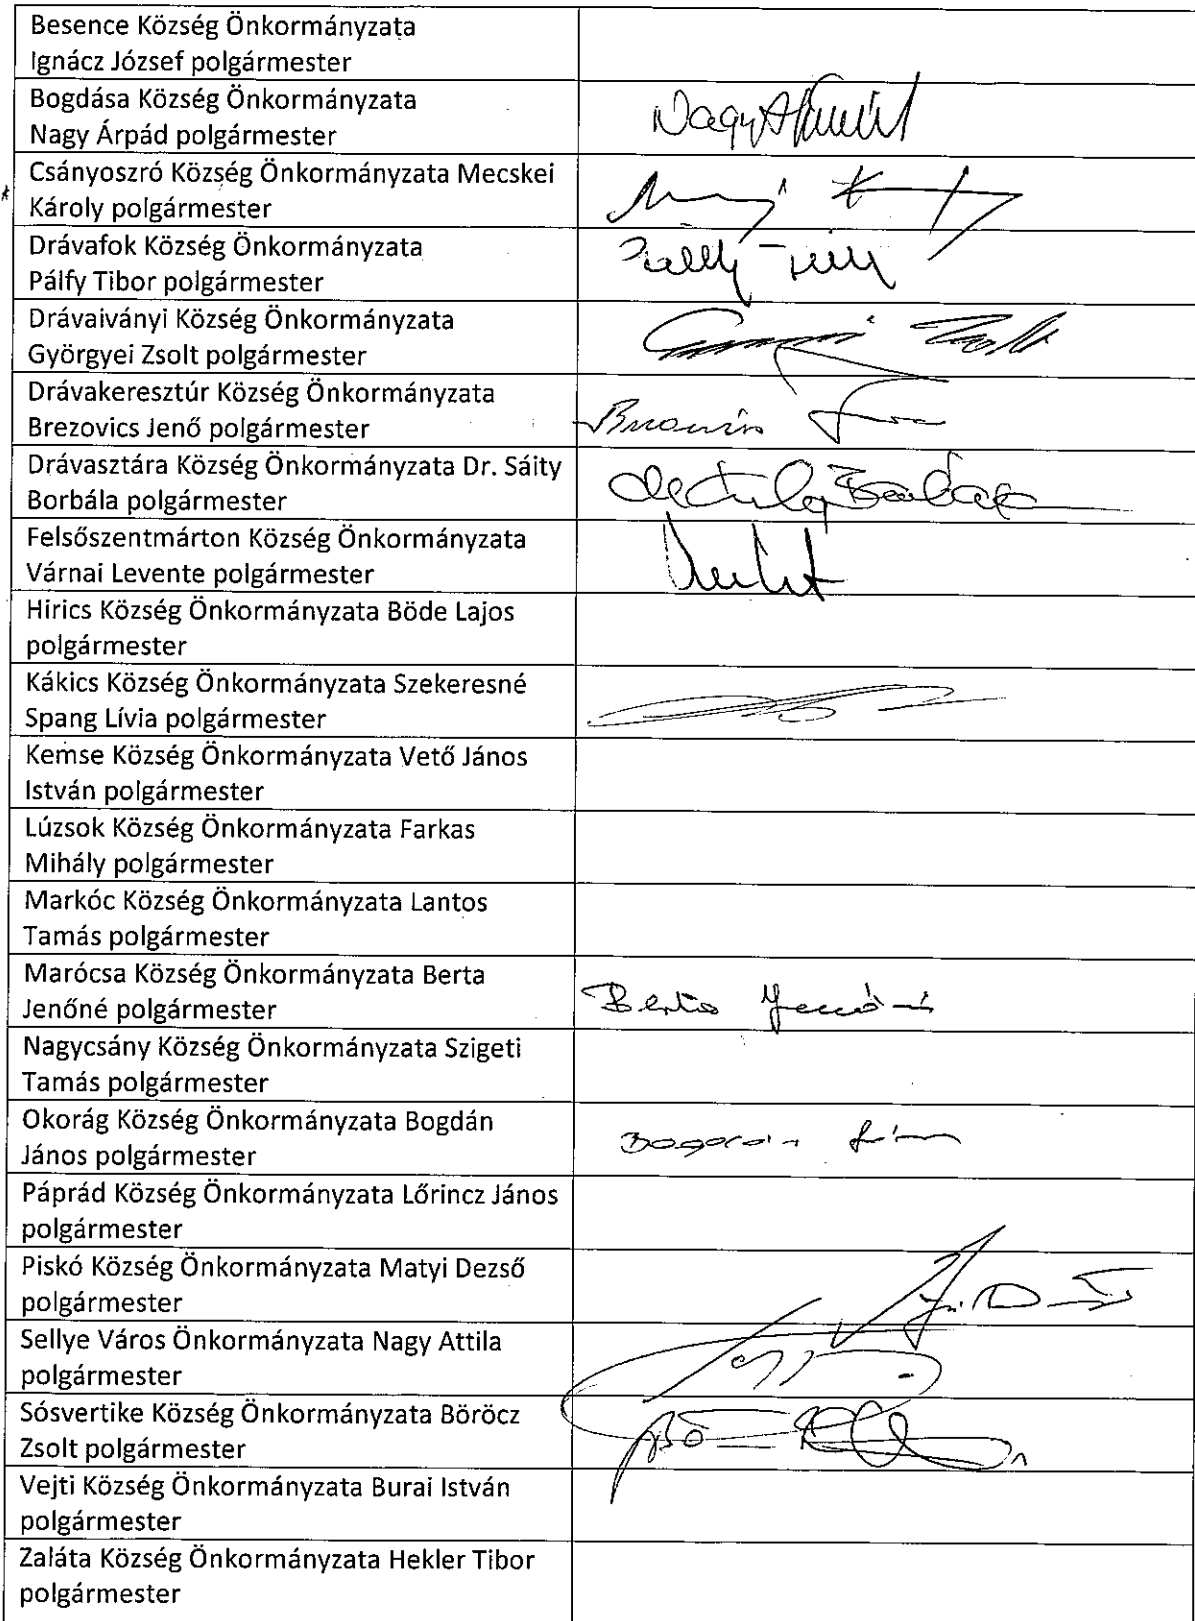 Besence Község Önkormányzata
Ignácz József polgármester
Bogdása Község Önkormányzata
Nagy Árpád polgármester
Nagy Árpád
Csányoszró Község Önkormányzata Mecskei
Károly polgármester
Drávafok Község Önkormányzata
Pálfy Tibor polgármester
Drávaiványi Község Önkormányzata
Györgyei Zsolt polgármester
Drávakeresztúr Község Önkormányzata
Brezovics Jenő polgármester
Drávasztára Község Önkormányzata Dr. Sáity
Borbála polgármester
Felsőszentmárton Község Önkormányzata
Várnai Levente polgármester
Hirics Község Önkormányzata Böde Lajos
polgármester
Kákics Község Önkormányzata Szekeresné
Spang Lívia polgármester
Kemse Község Önkormányzata Vető János
István polgármester
Lúzsok Község Önkormányzata Farkas
Mihály polgármester
Markóc Község Önkormányzata Lantos
Tamás polgármester
Marócsa Község Önkormányzata Berta
Jenőné polgármester
Berta Jenőné
Nagycsány Község Önkormányzata Szigeti
Tamás polgármester
Okorág Község Önkormányzata Bogdán
János polgármester
Páprád Község Önkormányzata Lőrincz János
polgármester
Piskó Község Önkormányzata Matyi Dezső
polgármester
Sellye Város Önkormányzata Nagy Attila
polgármester
Sósvertike Község Önkormányzata Böröcz
Zsolt polgármester
Vejti Község Önkormányzata Burai István
polgármester
Zaláta Község Önkormányzata Hekler Tibor
polgármester